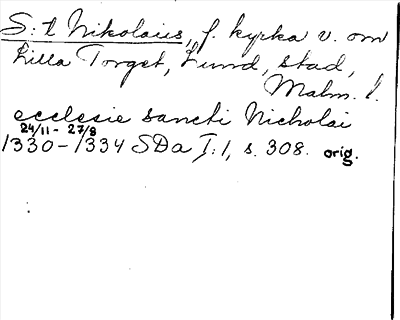 S:t Nikolaus, f. kyrka v. om
Lilla Torget, Lund, stad,
Malm. l.
ecclesie sancti Nicholai
24/11 - 27/8
1330-1334 SDa I:1, s. 308. orig.